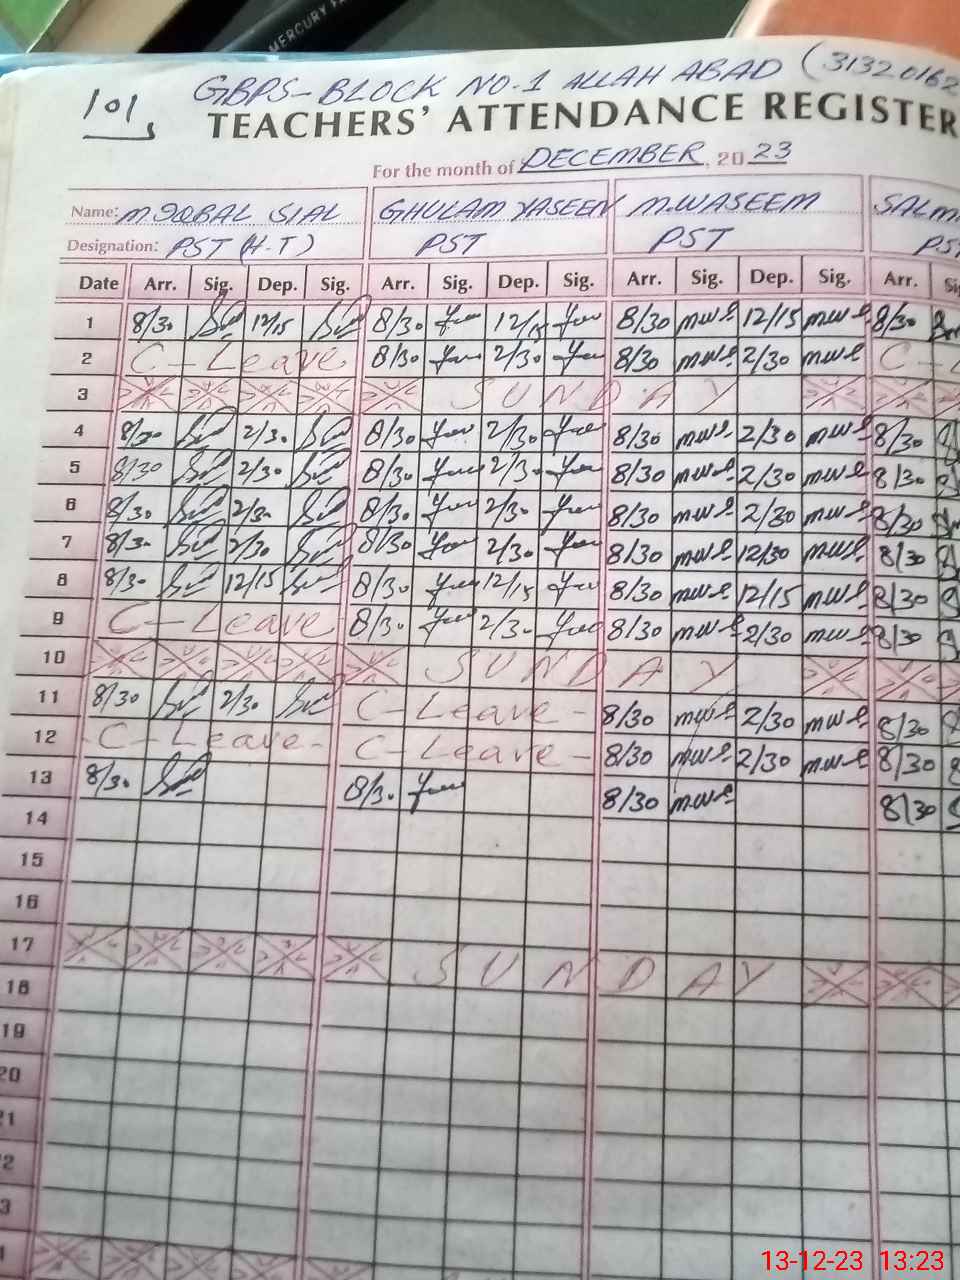 MERCURY
101,
GBPS-BLOCK NO.1 ALLAH ABAD (31320162
TEACHERS' ATTENDANCE REGISTER
For the month of DECEMBER, 2023
Name: M.IQBAL SIAL GHULAM YASEEN M.WASEEM SALM
Designation: PST (H.T) PST PST PS
Date Arr. Sig. Dep. Sig. Arr. Sig. Dep. Sig. Arr. Sig. Dep. Sig. Arr. Sig
1 8/30 12/15 8/30 12/15 8/30 12/15 8/30
2 C-Leave 8/30 2/30 8/30 2/30 C-L
3 SUNDAY
4 8/30 2/30 8/30 2/30 8/30 2/30 8/30
5 8/30 2/30 8/30 2/30 8/30 2/30 8/30
6 8/30 2/30 8/30 2/30 8/30 2/30 8/30
7 8/30 2/30 8/30 2/30 8/30 12/30 8/30
8 8/30 12/15 8/30 12/15 8/30 12/15 8/30
9 C-Leave 8/30 2/30 8/30 2/30 8/30
10 SUNDAY
11 8/30 2/30 C-Leave- 8/30 2/30 8/30
12 -C-Leave- C-Leave- 8/30 2/30 8/30
13 8/30 8/30 8/30 8/30
14
15
16
17 SUNDAY
18
19
20
21
13-12-23 13:23